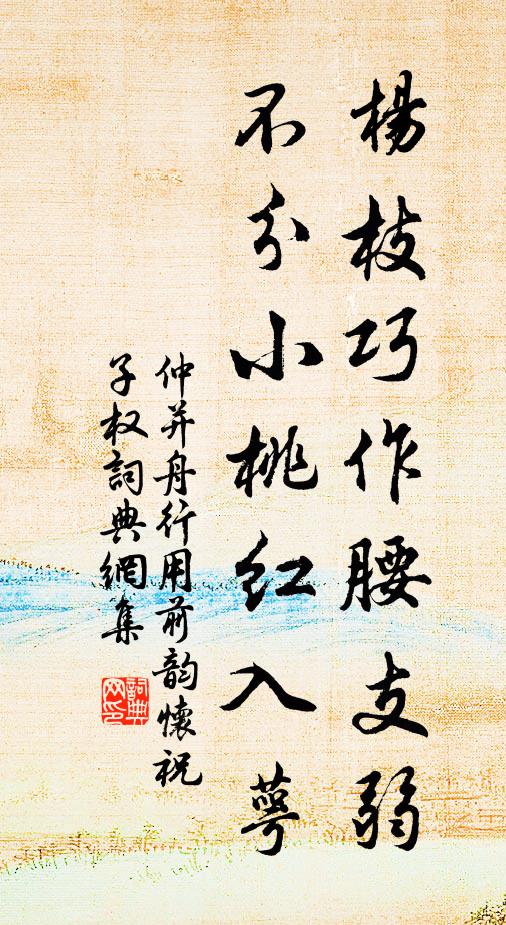 楊枝巧作腰支弱
不分小桃紅入萼
仲并舟行用前韵懷祝
子权詞典網集
詞典网印